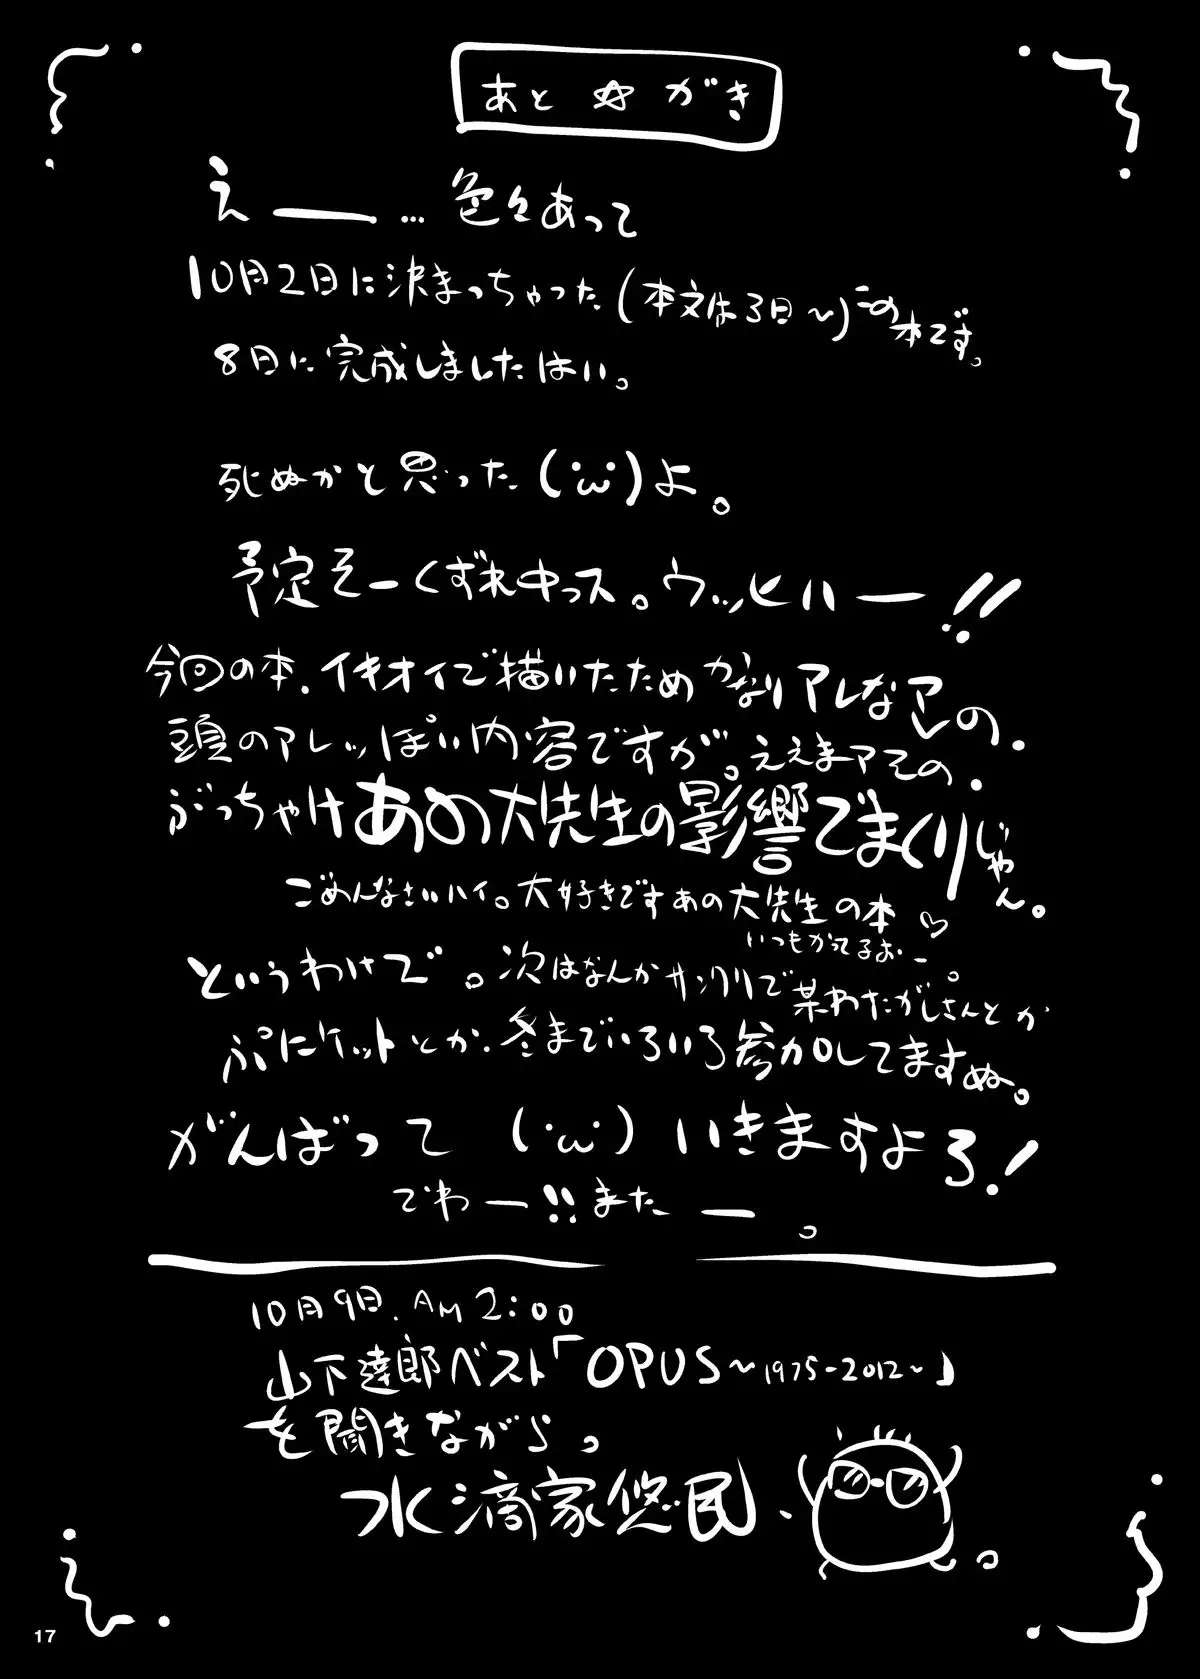 あと☆がき
えー…色々あって
10月2日に決まっちゃった(本文は3日～)この本です。
8日に完成しましたはい。
死ぬかと思った(´ω`)よ。
予定そーくずれ中っス。ウッヒハー!!
今回の本、イキオイで描いたためかなりアレなアレの、
頭のアレっぽい内容ですが。ええまァその、
ぶっちゃけあの大先生の影響でまくりじゃん。
ごめんなさいハイ。大好きですあの大先生の本♡
いつもかってるおー
というわけで。次はなんかサンクリで某わたがしさんとか。
ぷにケットとか、冬までいろいろ参加してますぬ。
がんばって(´ω`)いきますよろ!
でわー!!またー。
10月9日、AM2:00
山下達郎ベスト「OPUS～1975-2012～」
を聞きながら。
水滴家悠民、
17